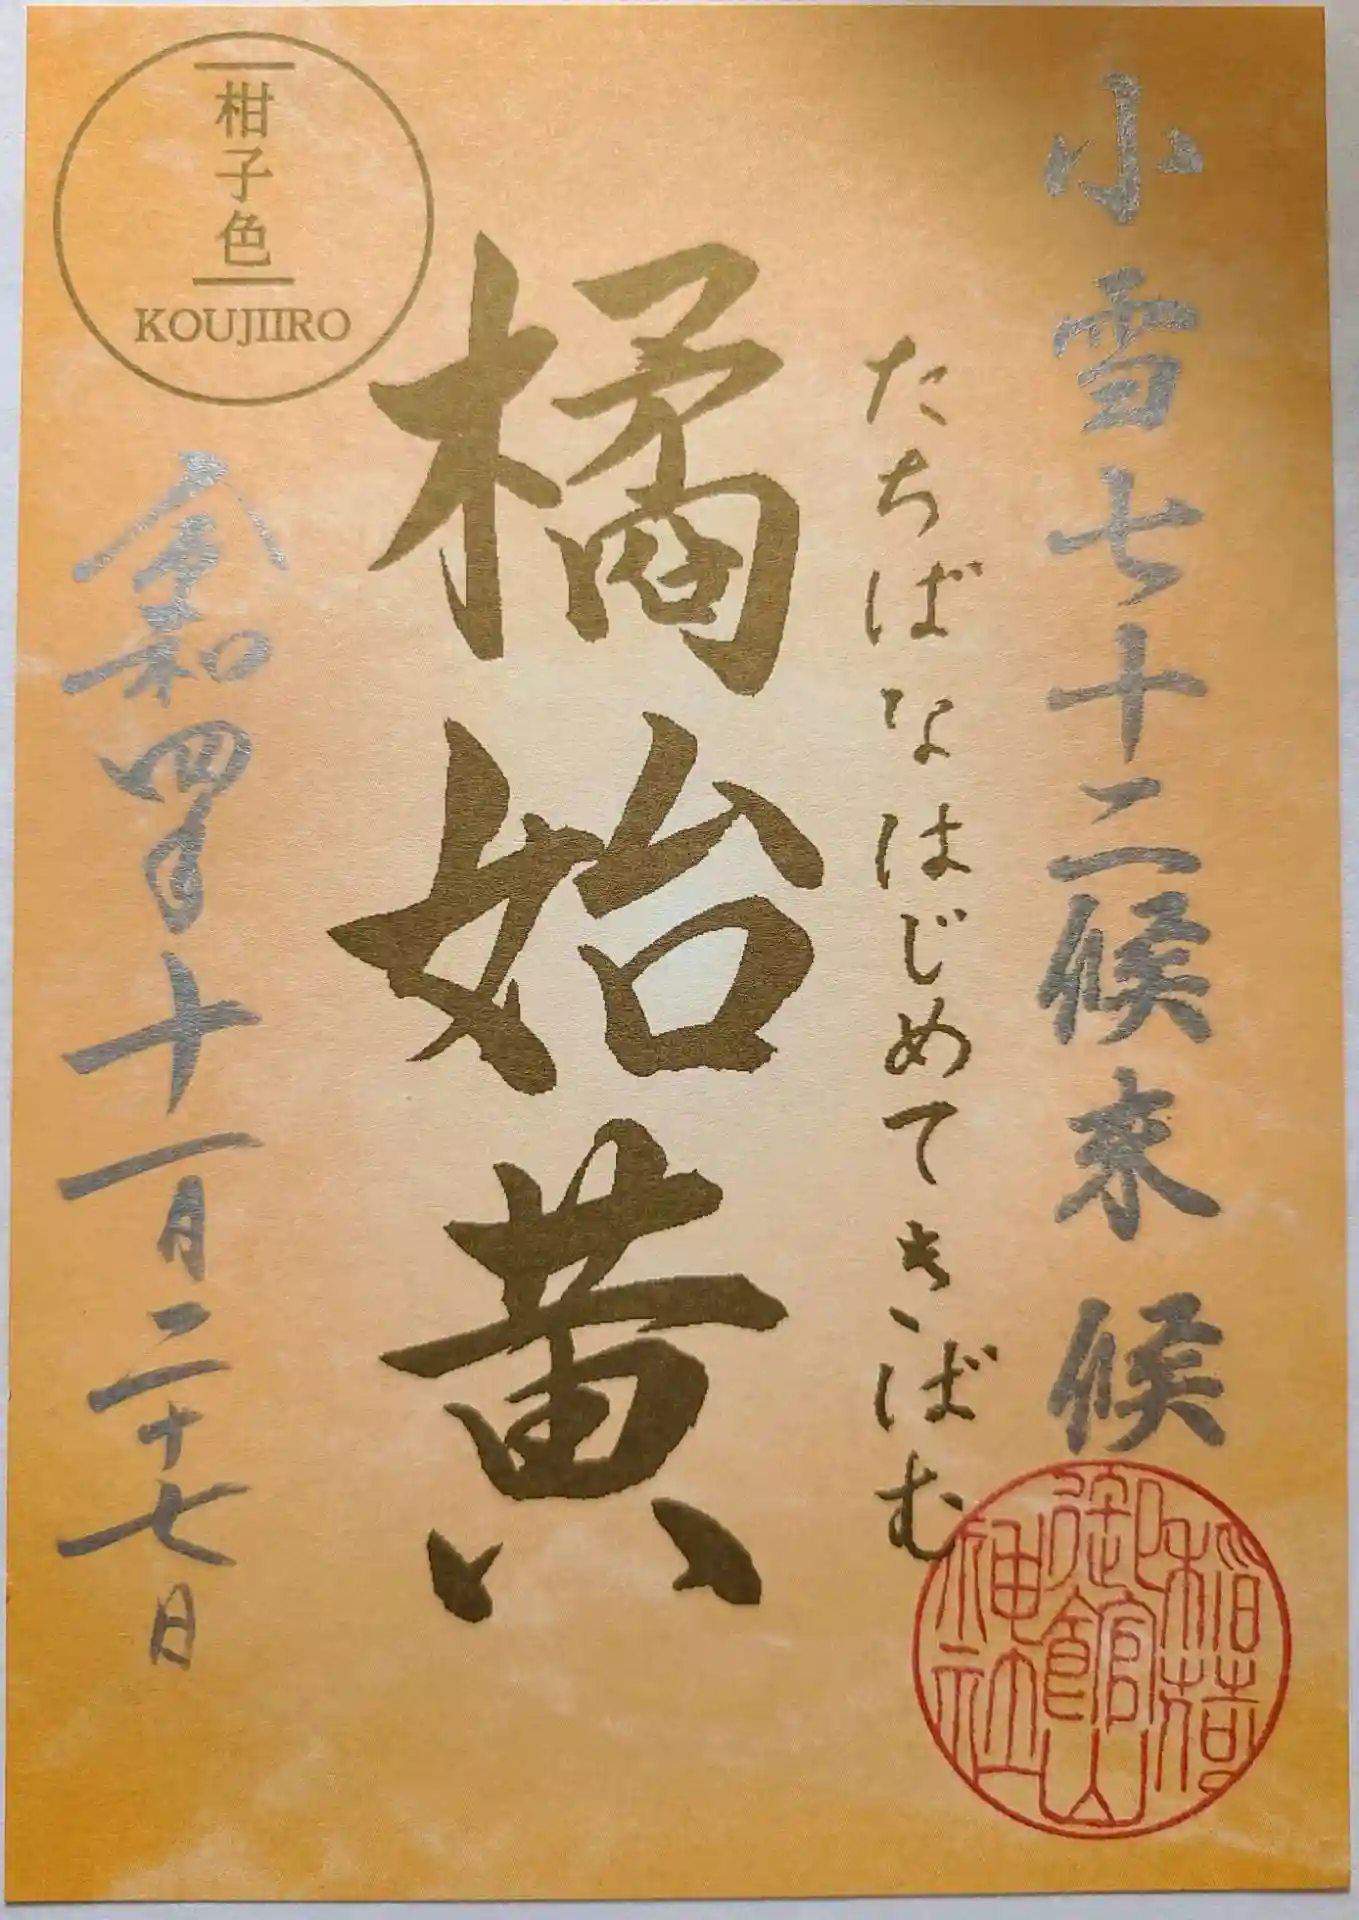 小雪七十二候末候
たちばなはじめてきばむ
橘始黄
柑子色
KOUJIIRO
令和四年十一月二十七日
稲荷
御館山
神社